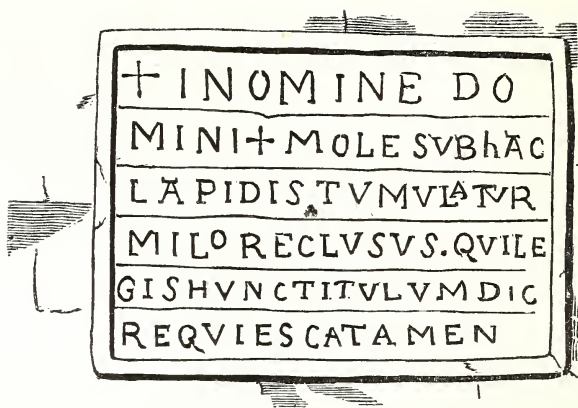 + INOMINE DO
MINI + MOLE SVBhAC
LAPIDIS TVMVLATVR
MILO RECLVSVS. QVILE
GISHVNCTITVLVMDIC
REQVIESCATAMEN